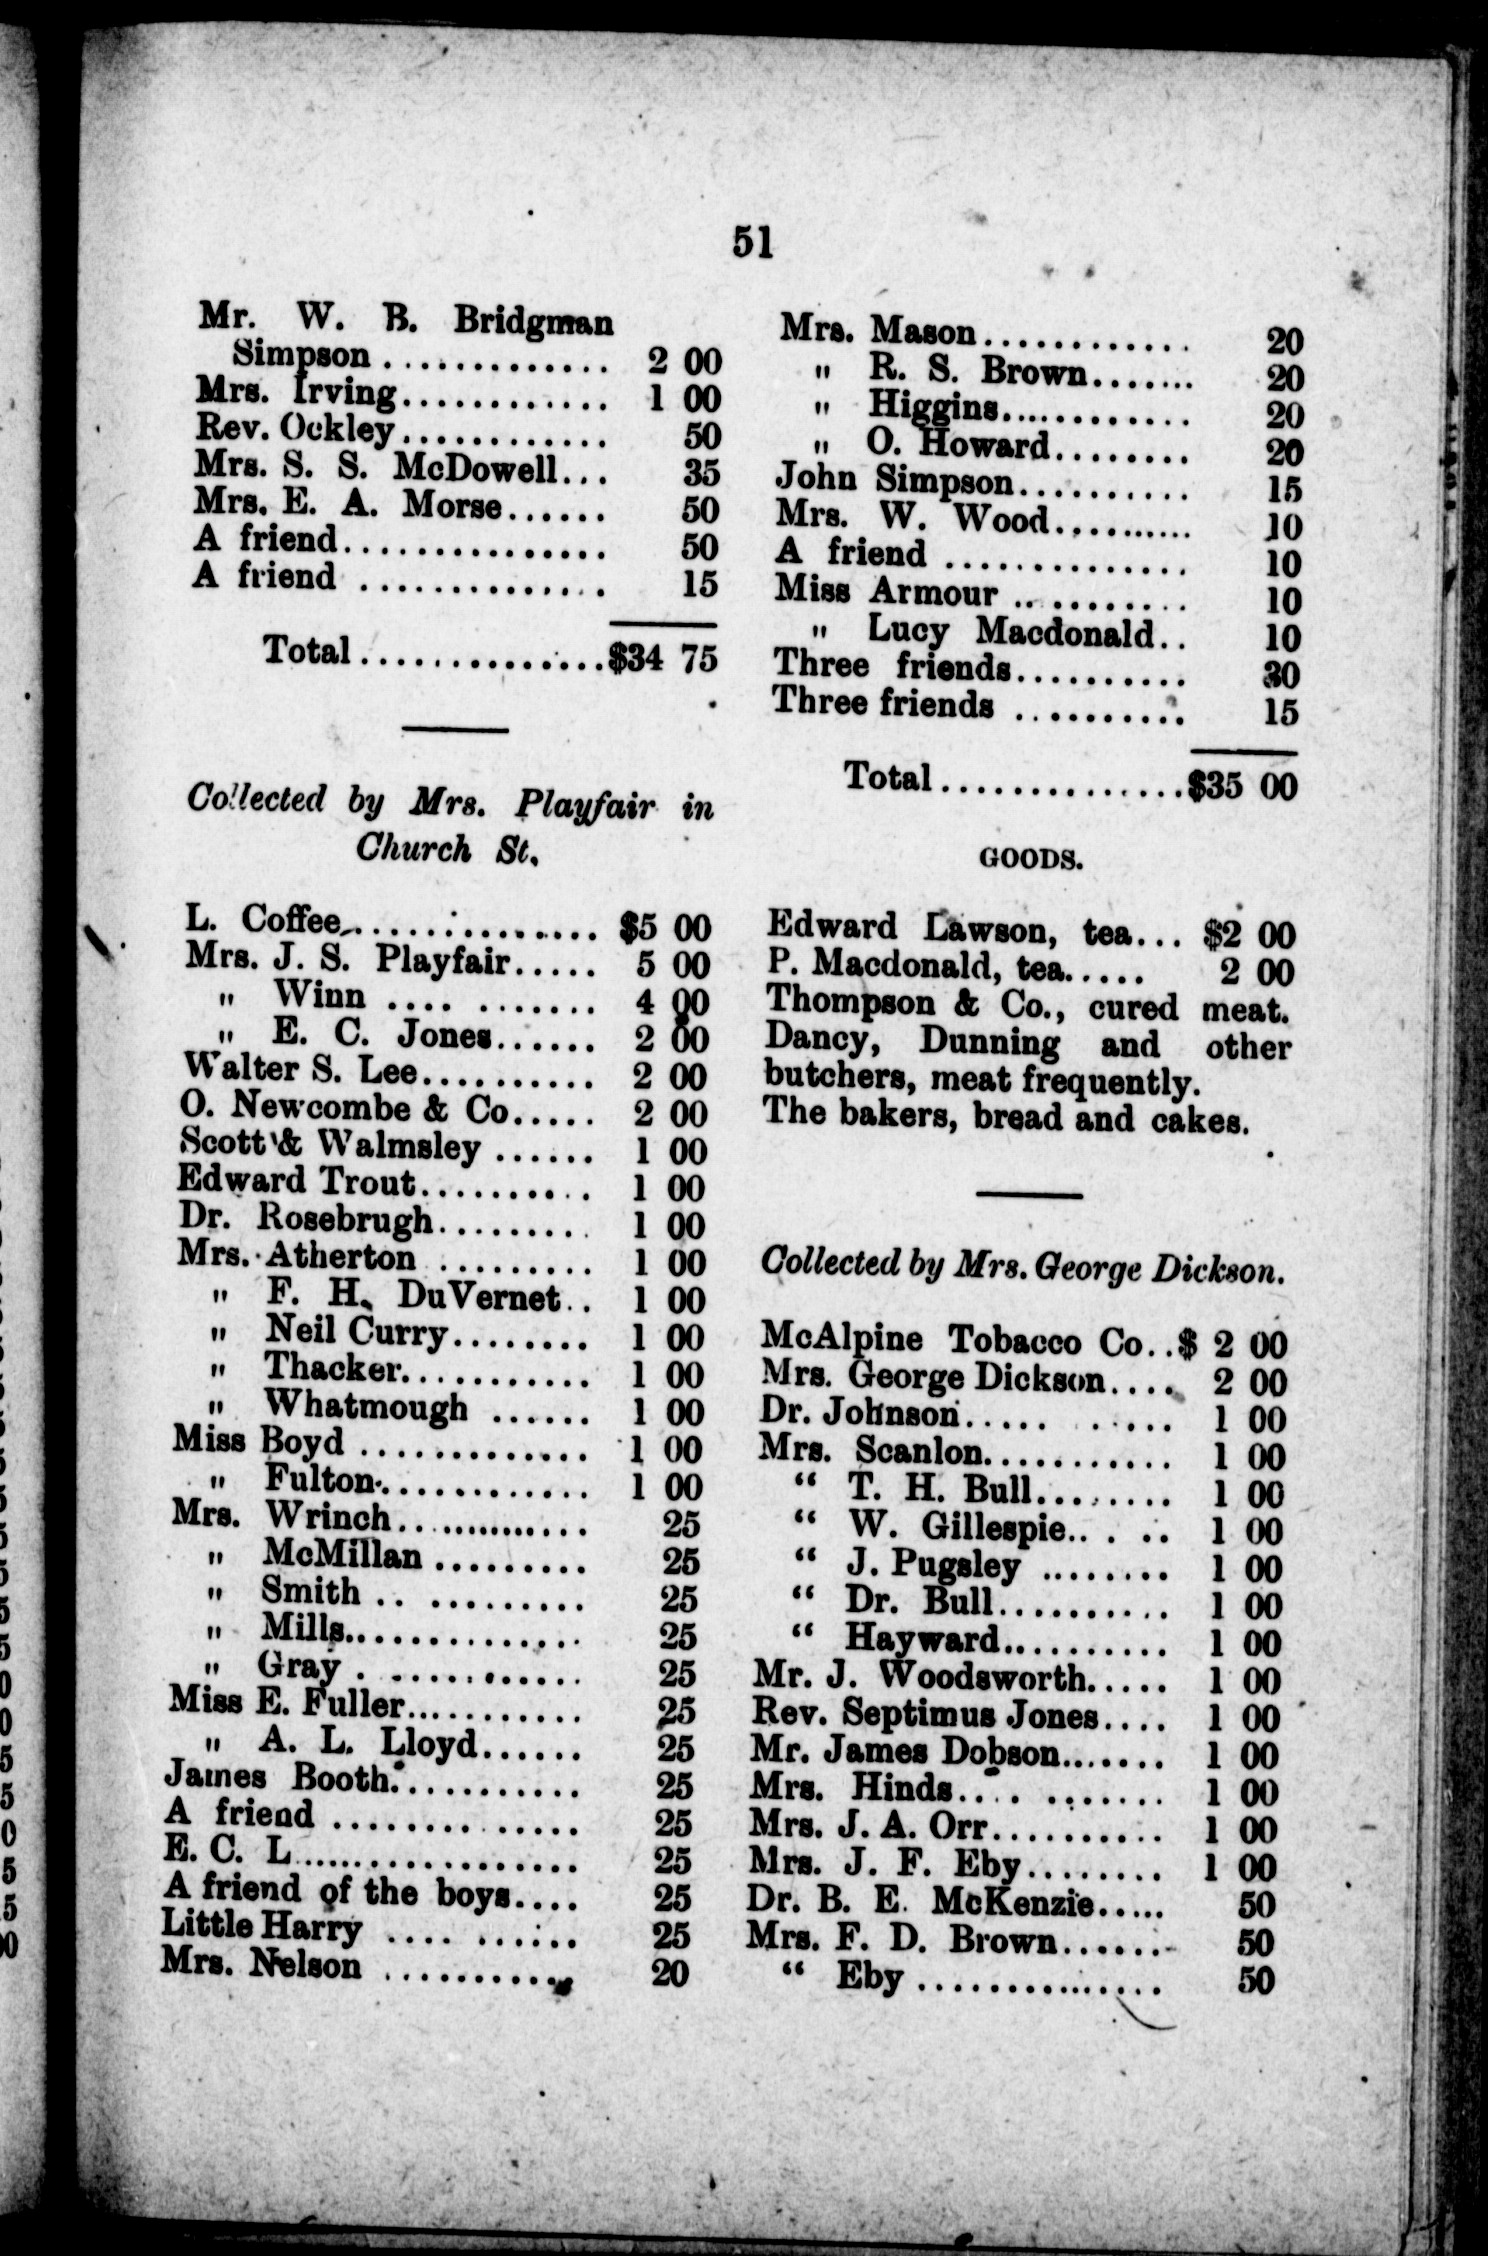 51
Mr. W. B. Bridgman
Simpson ............. 2 00
Mrs. Irving............ 1 00
Rev. Ockley............ 50
Mrs. S. S. McDowell... 35
Mrs. E. A. Morse...... 50
A friend............... 50
A friend .............. 15
Total ..............$34 75
Collected by Mrs. Playfair in
Church St.
L. Coffee............... $5 00
Mrs. J. S. Playfair..... 5 00
" Winn .... ....... 4 00
" E. C. Jones...... 2 00
Walter S. Lee.......... 2 00
O. Newcombe & Co..... 2 00
Scott & Walmsley ...... 1 00
Edward Trout.......... 1 00
Dr. Rosebrugh......... 1 00
Mrs. Atherton ......... 1 00
" F. H. DuVernet.. 1 00
" Neil Curry........ 1 00
" Thacker........... 1 00
" Whatmough ...... 1 00
Miss Boyd ............. 1 00
" Fulton............. 1 00
Mrs. Wrinch............. 25
" McMillan .......... 25
" Smith .. ......... 25
" Mills.............. 25
" Gray . ........... 25
Miss E. Fuller........... 25
" A. L. Lloyd...... 25
James Booth........... 25
A friend .............. 25
E. C. L................. 25
A friend of the boys.... 25
Little Harry .... ...... 25
Mrs. Nelson ........... 20
Mrs. Mason............ 20
" R. S. Brown....... 20
" Higgins............ 20
" O. Howard........ 20
John Simpson.......... 15
Mrs. W. Wood.......... 10
A friend .............. 10
Miss Armour .. ........ 10
" Lucy Macdonald.. 10
Three friends.......... 30
Three friends .......... 15
Total..............$35 00
GOODS.
Edward Lawson, tea... $2 00
P. Macdonald, tea..... 2 00
Thompson & Co., cured meat.
Dancy, Dunning and other
butchers, meat frequently.
The bakers, bread and cakes.
Collected by Mrs. George Dickson.
McAlpine Tobacco Co..$ 2 00
Mrs. George Dickson.... 2 00
Dr. Johnson..... ..... 1 00
Mrs. Scanlon........... 1 00
“ T. H. Bull........ 1 00
“ W. Gillespie.. . .. 1 00
“ J. Pugsley ........ 1 00
“ Dr. Bull........... 1 00
“ Hayward.......... 1 00
Mr. J. Woodsworth..... 1 00
Rev. Septimus Jones.... 1 00
Mr. James Dobson....... 1 00
Mrs. Hinds.... ....... 1 00
Mrs. J. A. Orr.......... 1 00
Mrs. J. F. Eby........ 1 00
Dr. B. E. McKenzie..... 50
Mrs. F. D. Brown...... 50
“ Eby ............... 50